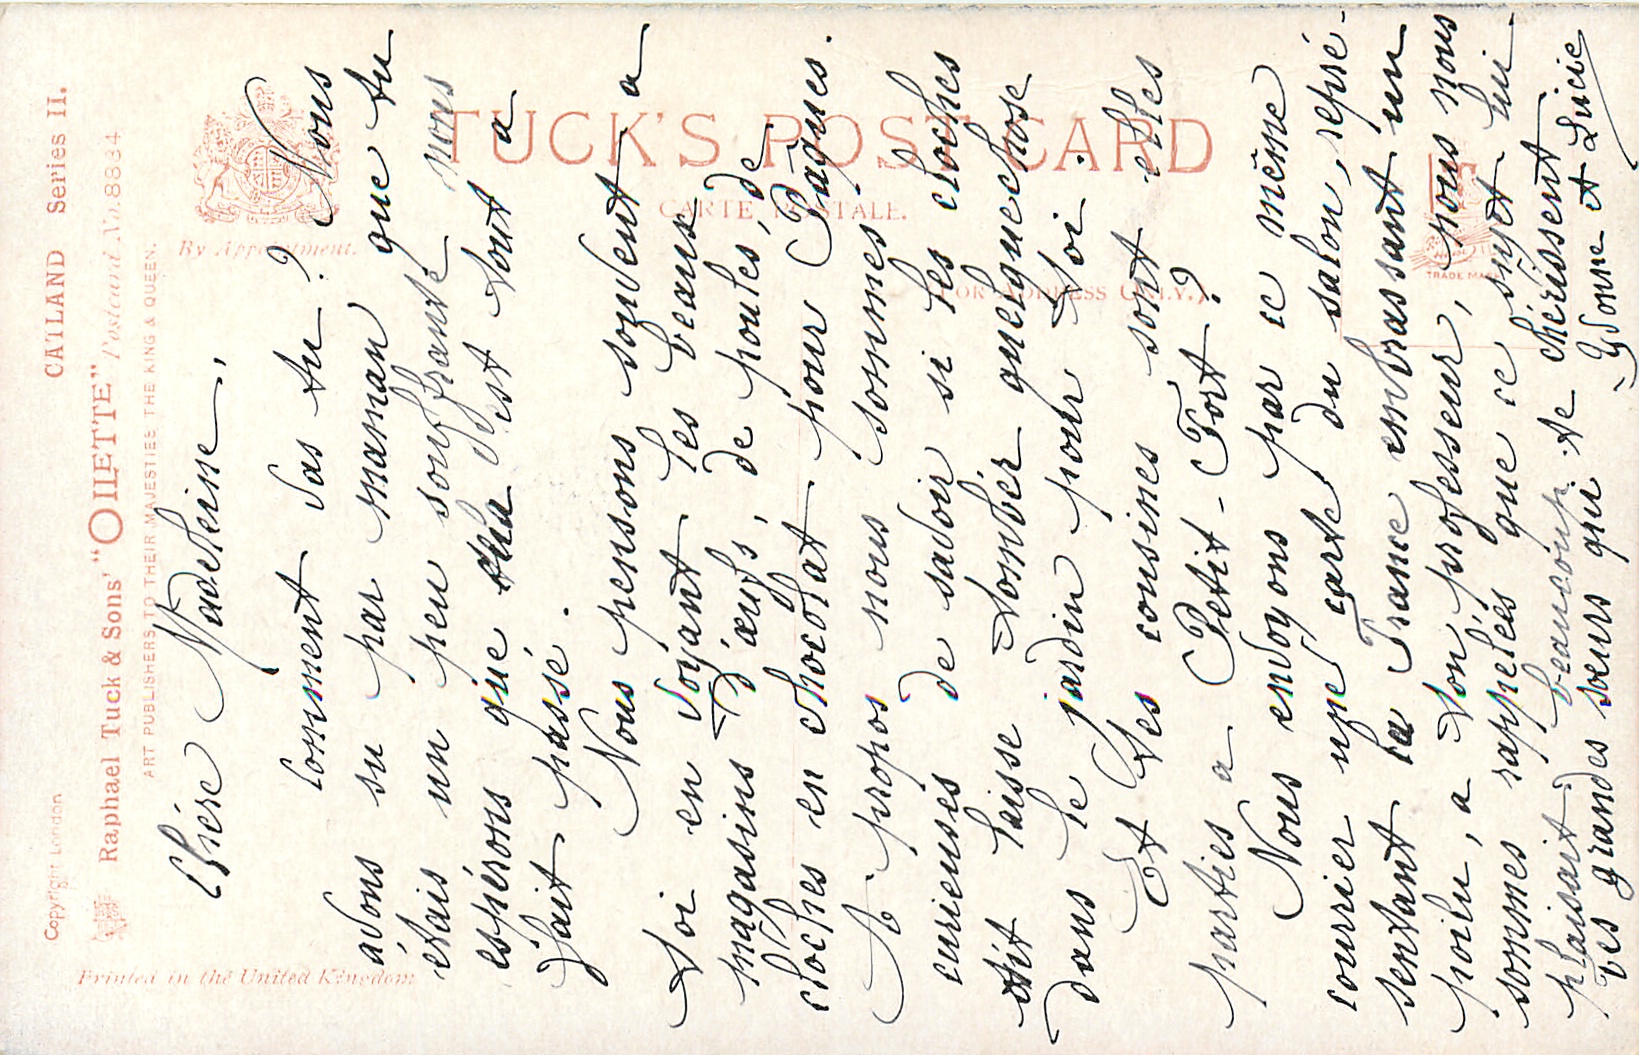 Copyright London
CATLAND Series II.
Raphael Tuck & Sons' "OILETTE" Postcard No. 8884
ART PUBLISHERS TO THEIR MAJESTIES THE KING & QUEEN.
Printed in the United Kingdom
By Appointment.
TUCK'S POST CARD
CARTE POSTALE.
(FOR ADDRESS ONLY.)
TRADE MARK
Chère Madeleine,
Comment vas tu ? Nous
avons su par maman que tu
étais un peu souffrante nous
espérons que c'est tout a
fait passé.
Nous pensons souvent a
toi en voyant les beaux
magasins d'œufs, de poules, de
cloches en chocolat pour Pâques.
A propos nous sommes
curieuses de savoir si les cloches
ont laissé tomber quelque chose
dans le jardin pour toi.
Et tes cousines sont elles
parties a Petit-Fort ?
Nous envoyons par ce même
courrier une carte du salon, repré-
sentant la France embrassant un
poilu, a ton professeur, nous nous
sommes rappelés que ce sujet lui
plaisait beaucoup.
Tes grandes sœurs qui te chérissent
Yvonne et Lucie